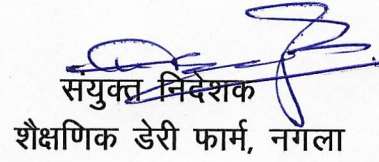 संयुक्त निदेशक
शैक्षणिक डेरी फार्म, नगला